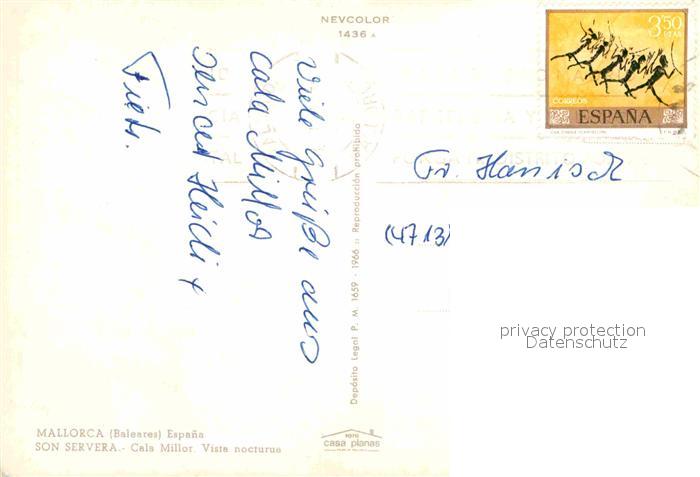 NEVCOLOR
1436 A
Viele Grüße aus
Cala Millor
Heidi +
3,50
PTAS
CORREOS
ESPAÑA
Fr. Hanisch
(4713)
Depósito Legal P. M. 1659 - 1966 :: Reproducción prohibida
privacy protection
Datenschutz
MALLORCA (Baleares) España
SON SERVERA.- Cala Millor. Vista nocturna
casa planas